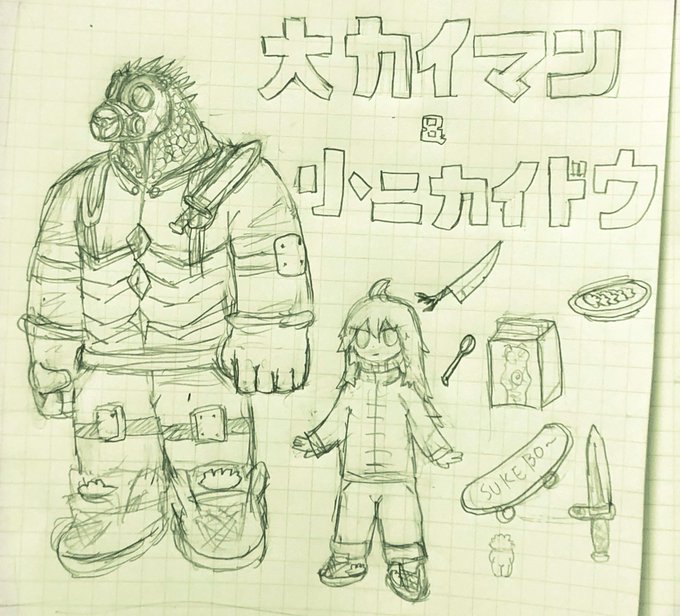 大カイマン
&
小ニカイドウ
SUKEBO~